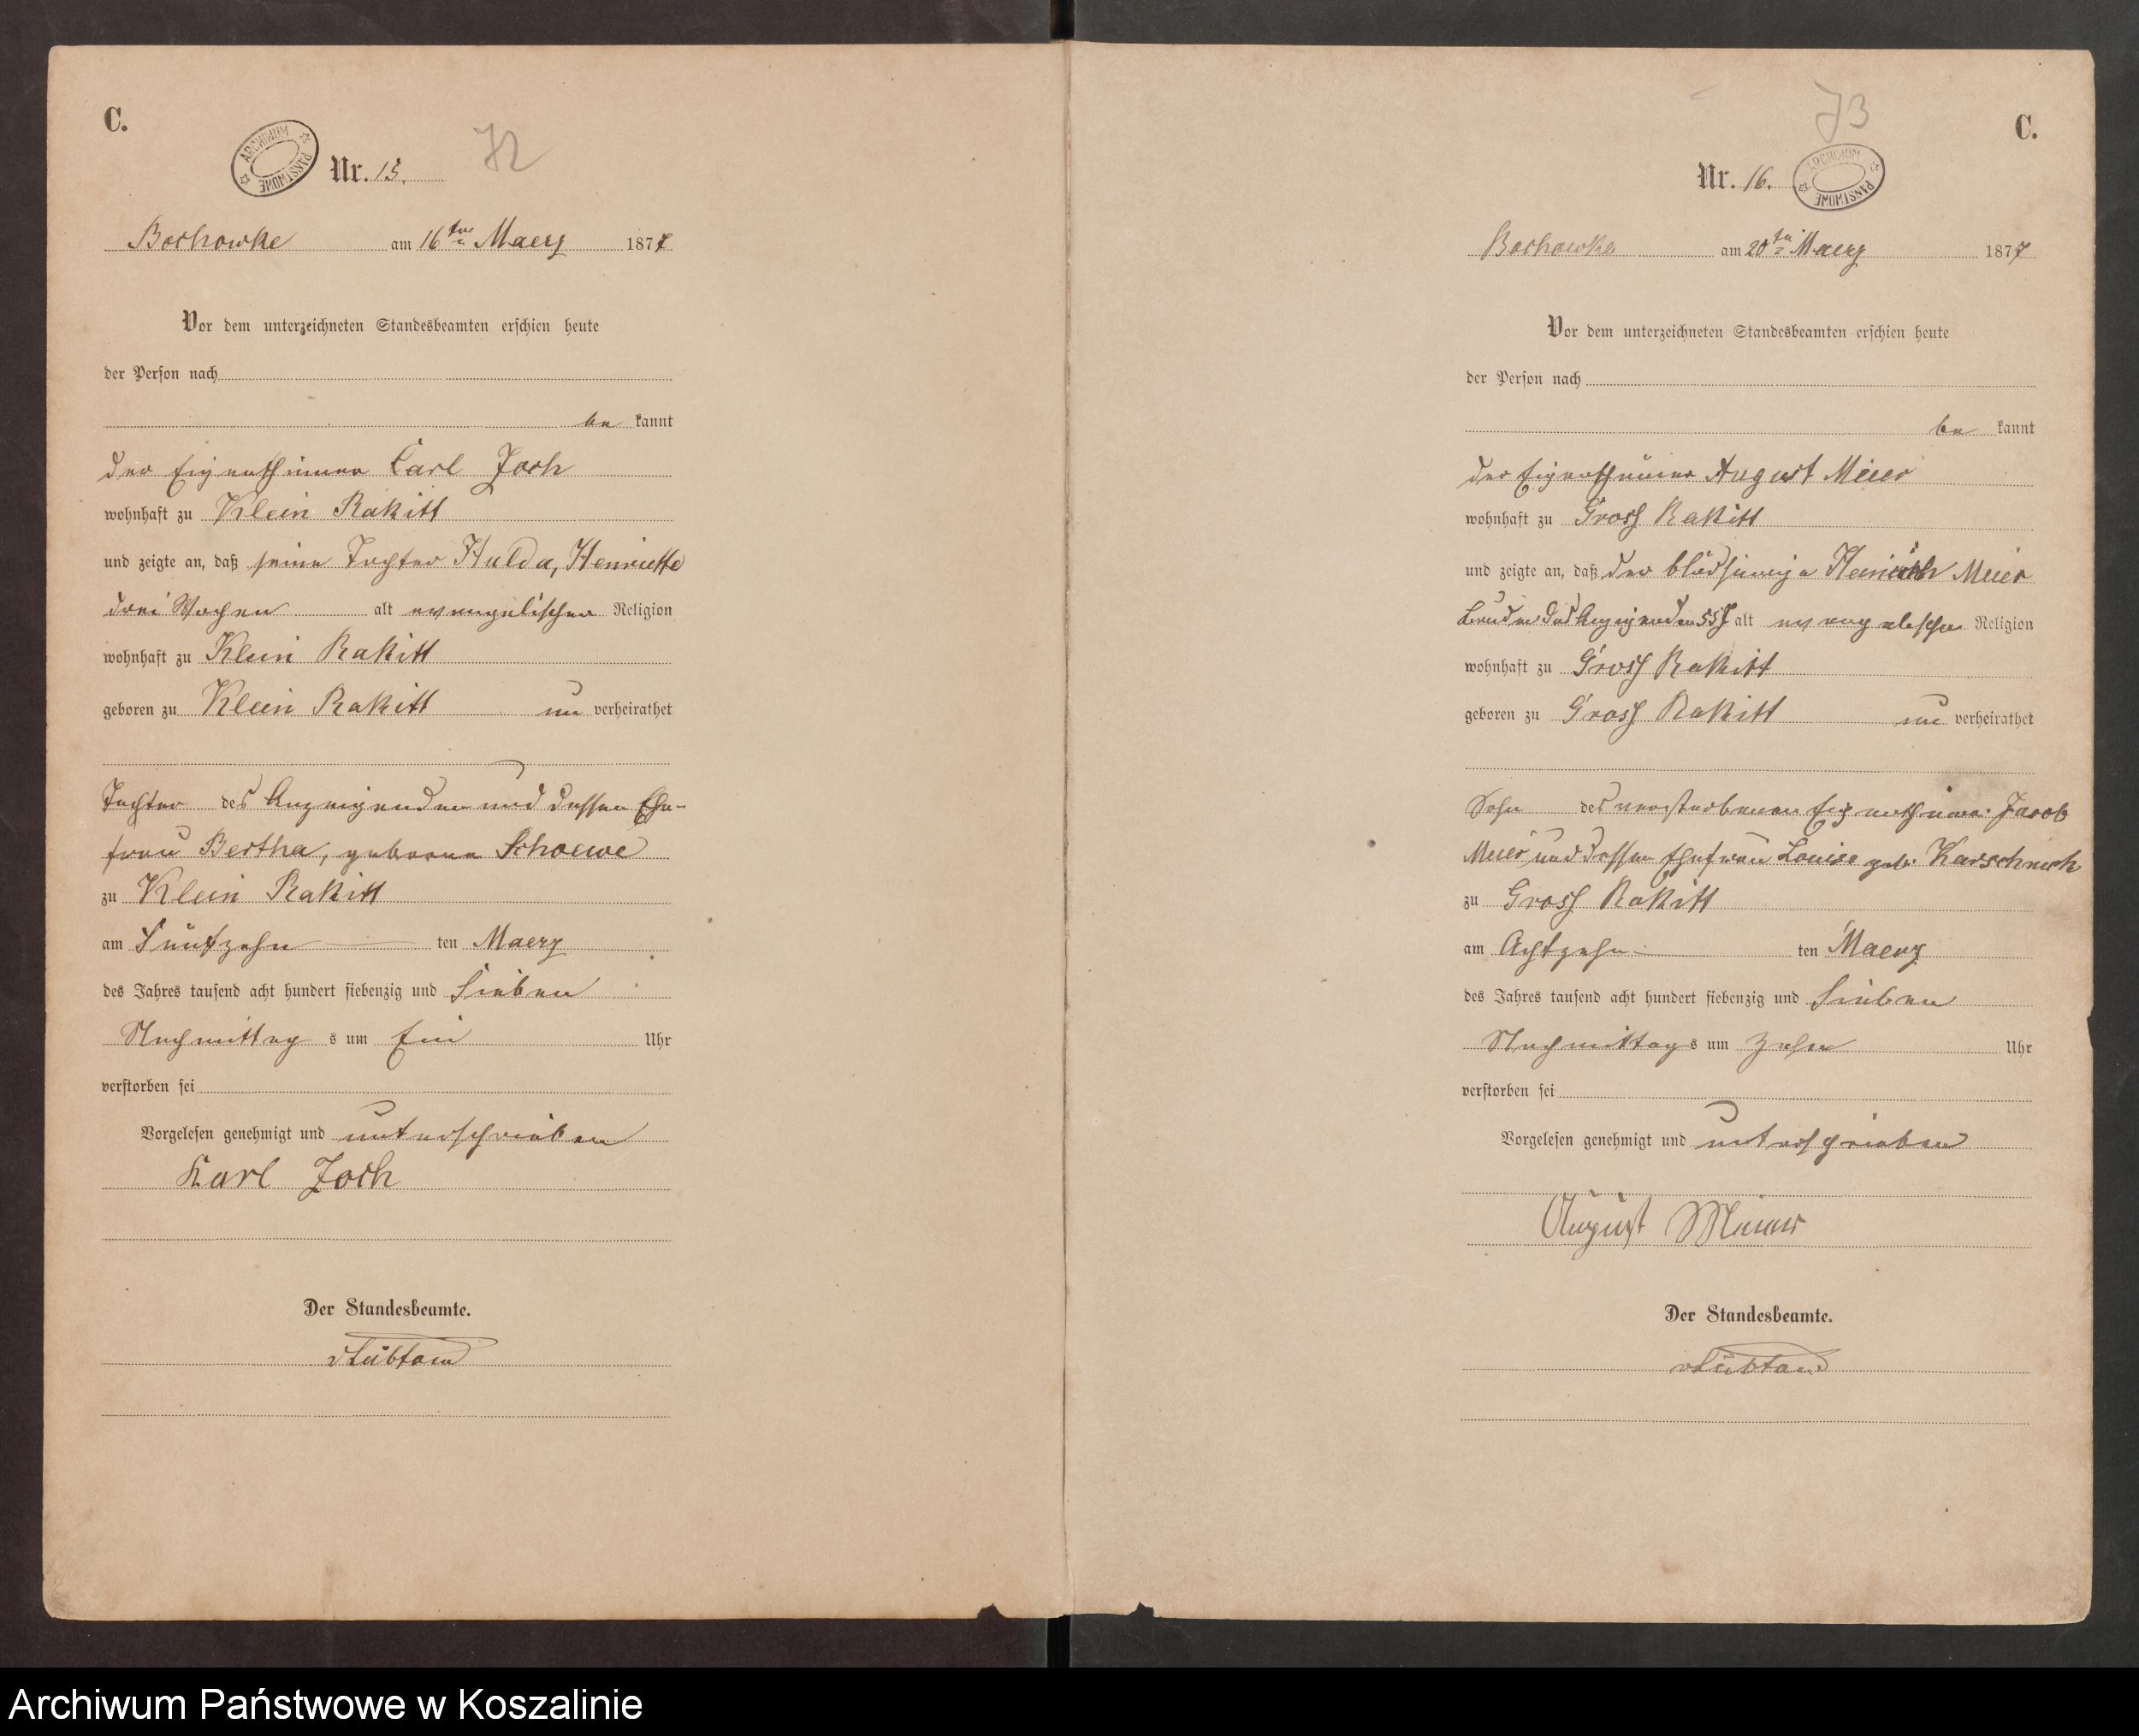 C.
ARCHIWUM PAŃSTWOWE
72
Nr. 15.
Bochowke am 16ten Maerz 1877
Vor dem unterzeichneten Standesbeamten erschien heute
der Person nach
be kannt
der Eigenthümer Carl Zoch
wohnhaft zu Klein Rakitt
und zeigte an, daß seine Tochter Hulda, Henriette
drei Wochen alt evangelischer Religion
wohnhaft zu Klein Rakitt
geboren zu Klein Rakitt un verheirathet
Tochter des Anzeigenden und dessen Ehe-
frau Bertha, geborene Schoewe
zu Klein Rakitt
am Fünfzehn ten Maerz
des Jahres tausend acht hundert siebenzig und sieben
Nachmittag s um Ein Uhr
verstorben sei
Vorgelesen genehmigt und unterschrieben
Karl Zoch
Der Standesbeamte.
C.
73
Nr. 16.
ARCHIWUM PAŃSTWOWE
Bochowke am 20ten Maerz 1877
Vor dem unterzeichneten Standesbeamten erschien heute
der Person nach
be kannt
der Eigenthümer August Meier
wohnhaft zu Gross Rakitt
und zeigte an, daß der blödsinnige Heinrich Meier
Bruder des Anzeigenden 55 J alt evangelischer Religion
wohnhaft zu Gross Rakitt
geboren zu Gross Rakitt un verheirathet
Sohn des verstorbenen Eigenthümer Jacob
Meier und dessen Ehefrau Louise geb. Karschnick
zu Gross Rakitt
am Achtzehn ten Maerz
des Jahres tausend acht hundert siebenzig und sieben
Nachmittag s um zehn Uhr
verstorben sei
Vorgelesen genehmigt und unterschrieben
August Meier
Der Standesbeamte.
Archiwum Państwowe w Koszalinie